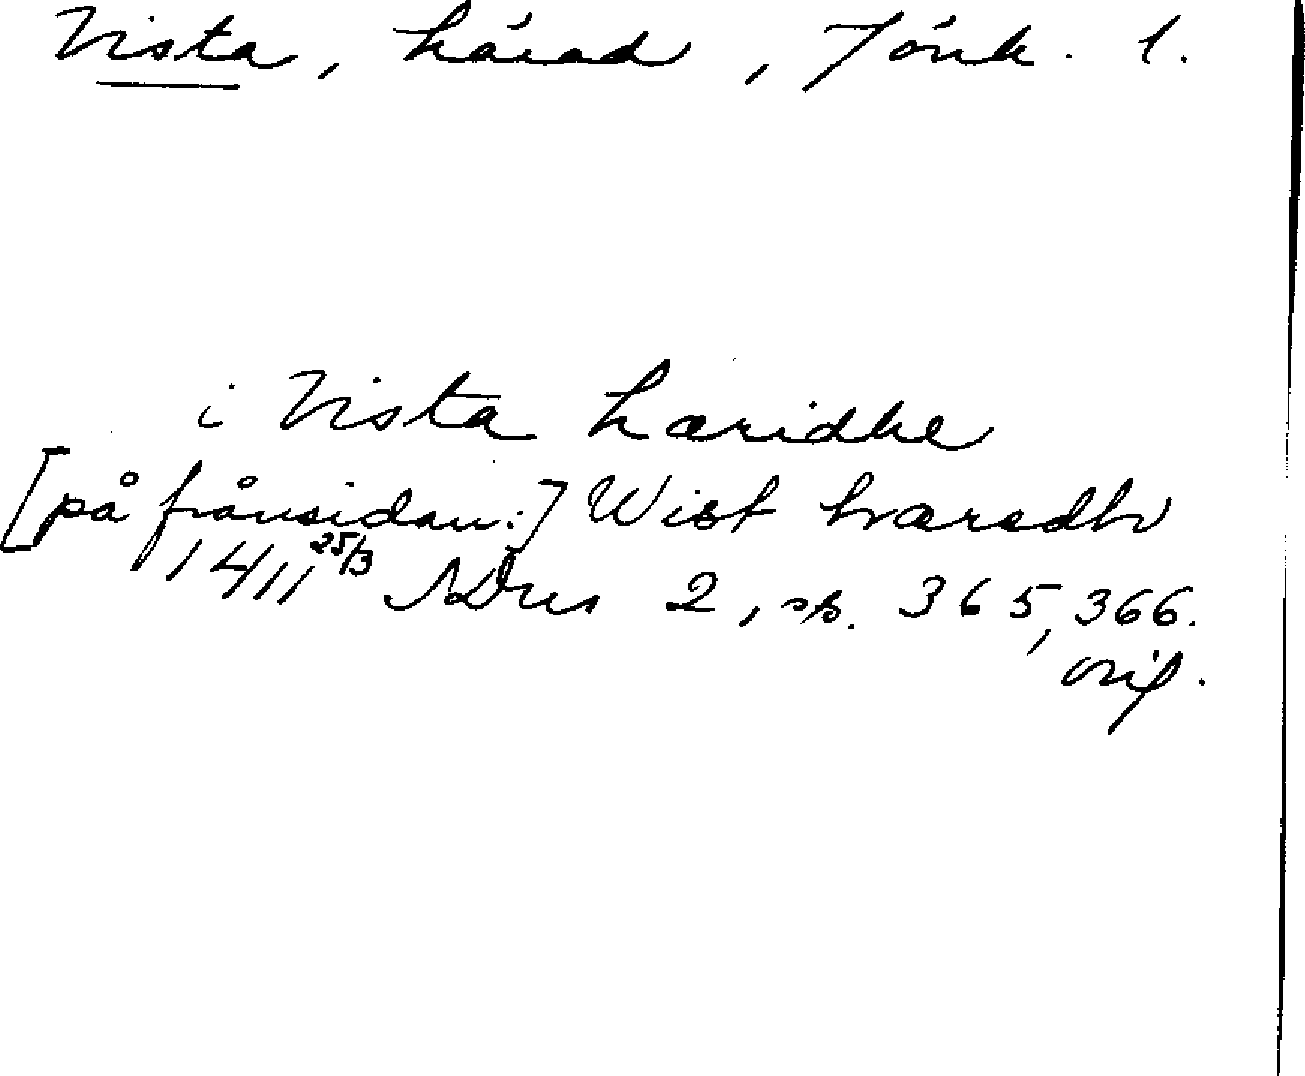 Vista, härad, Jönk. l.
i Vista hæridhe
[på frånsidan:] Wist hæredh
1411 25/3 SDns 2, s. 365, 366.
orig.